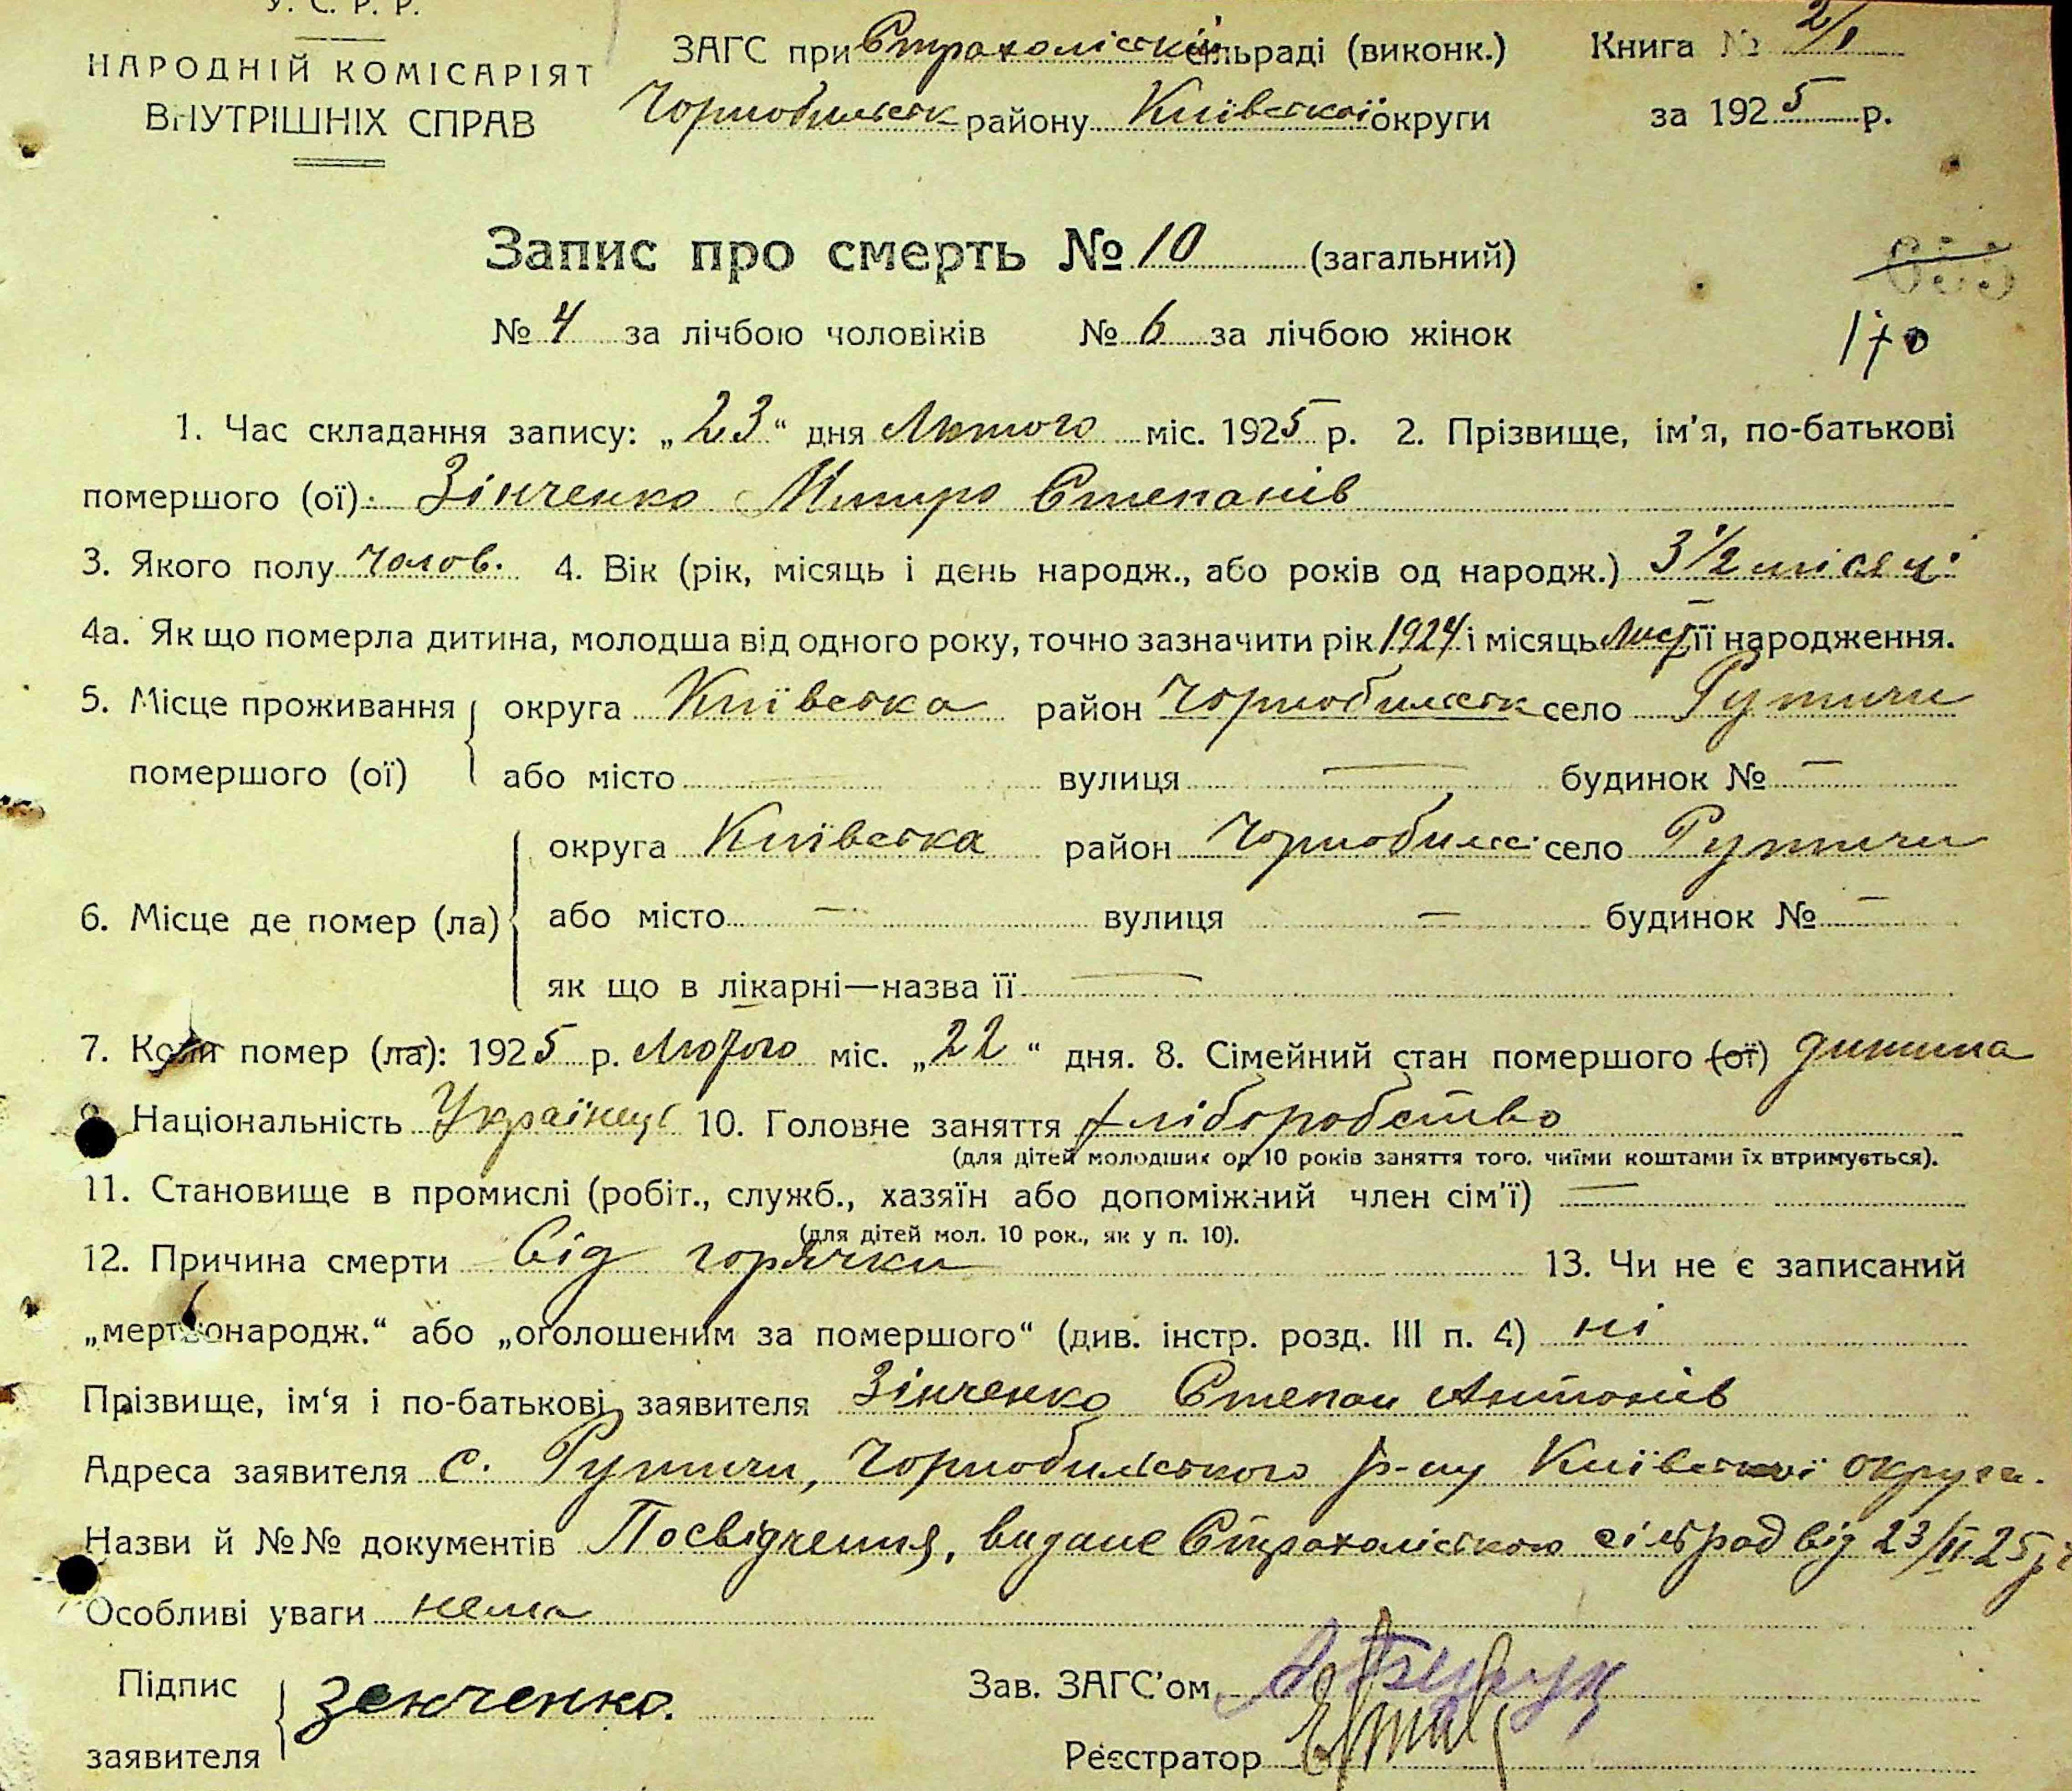 У. С. Р. Р.
НАРОДНІЙ КОМІСАРІЯТ
ВНУТРІШНІХ СПРАВ
ЗАГС при Страхоліській сільраді (виконк.)
Чорнобильськ району Київської округи
Книга № 2/1
за 1925 р.
Запис про смерть № 10 (загальний)
№ 4 за лічбою чоловіків № 6 за лічбою жінок
170
1. Час складання запису: „23“ дня Лютого міс. 1925 р. 2. Прізвище, ім'я, по-батькові
помершого (ої): Зінченко Степанів
3. Якого полу чолов. 4. Вік (рік, місяць і день народж., або років од народж.) 3½ місяці
4а. Як що померла дитина, молодша від одного року, точно зазначити рік 1924 і місяць Лист її народження.
5. Місце проживання помершого (ої) округа Київська район Чорнобильськ село Рутичи
або місто — вулиця — будинок № —
6. Місце де помер (ла) округа Київська район Чорнобильс село Рутичи
або місто — вулиця — будинок № —
як що в лікарні—назва її —
7. Коли помер (ла): 1925 р. Лютого міс. „22“ дня. 8. Сімейний стан помершого (ої) дитина
9. Національність Українець 10. Головне заняття хліборобство
(для дітей молодших од 10 років заняття того, чиїми коштами їх втримується).
11. Становище в промислі (робіт., служб., хазяїн або допоміжний член сім'ї) —
(для дітей мол. 10 рок., як у п. 10).
12. Причина смерти Від горячки 13. Чи не є записаний
„мертвонародж.“ або „оголошеним за помершого“ (див. інстр. розд. III п. 4) ні
Прізвище, ім'я і по-батькові заявителя Зінченко Степан Антонів
Адреса заявителя с. Рутичи, Чорнобильського р-ну Київської округи.
Назви й №№ документів Посвідчення, видане Страхоліською сільрад від 23/II 25 р
Особливі уваги нема
Підпис заявителя Зенченко.
Зав. ЗАГС'ом
Реєстратор